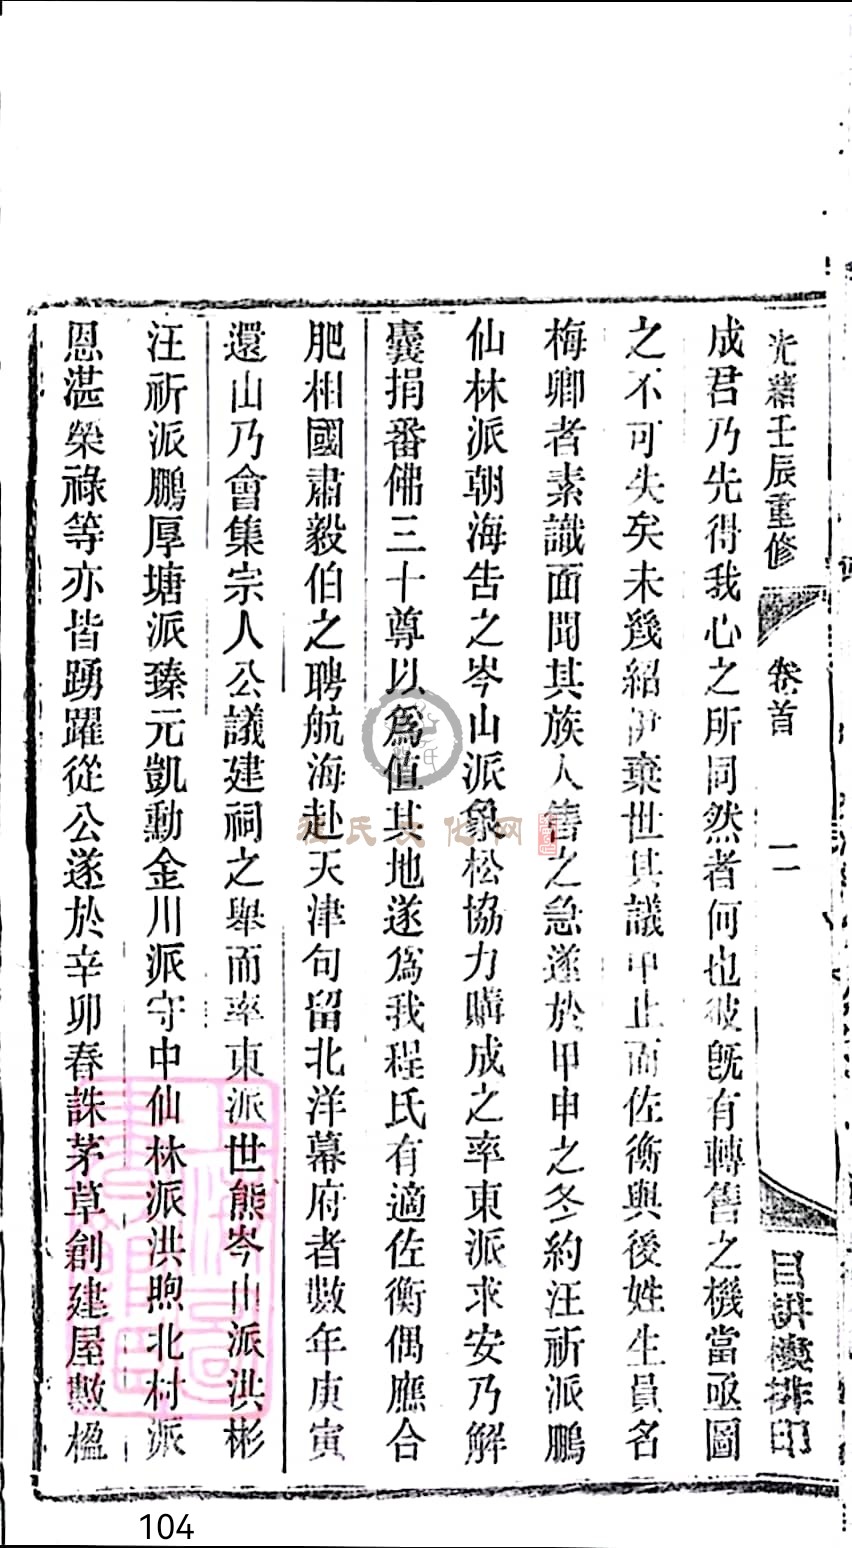 光緒壬辰重修
卷首
二
日講樓排印
成君乃先得我心之所同然者何也彼既有轉售之機當亟圖
之不可失矣未幾紹伊棄世其議中止而佐衡與後姓生員名
梅卿者素識面聞其族人售之急遂於甲申之冬約汪祈派鵬
仙林派朝海告之岑山派象松協力購成之率東派求安乃解
囊捐番佛三十尊以為值其地遂為我程氏有適佐衡偶應合
肥相國肅毅伯之聘航海赴天津句留北洋幕府者數年庚寅
還山乃會集宗人公議建祠之舉而率東派世熊岑山派洪彬
汪祈派鵬厚塘派臻元凱勳金川派守中仙林派洪煦北村派
恩湛榮祿等亦皆踴躍從公遂於辛卯春誅茅草創建屋數楹
程氏文化网
104